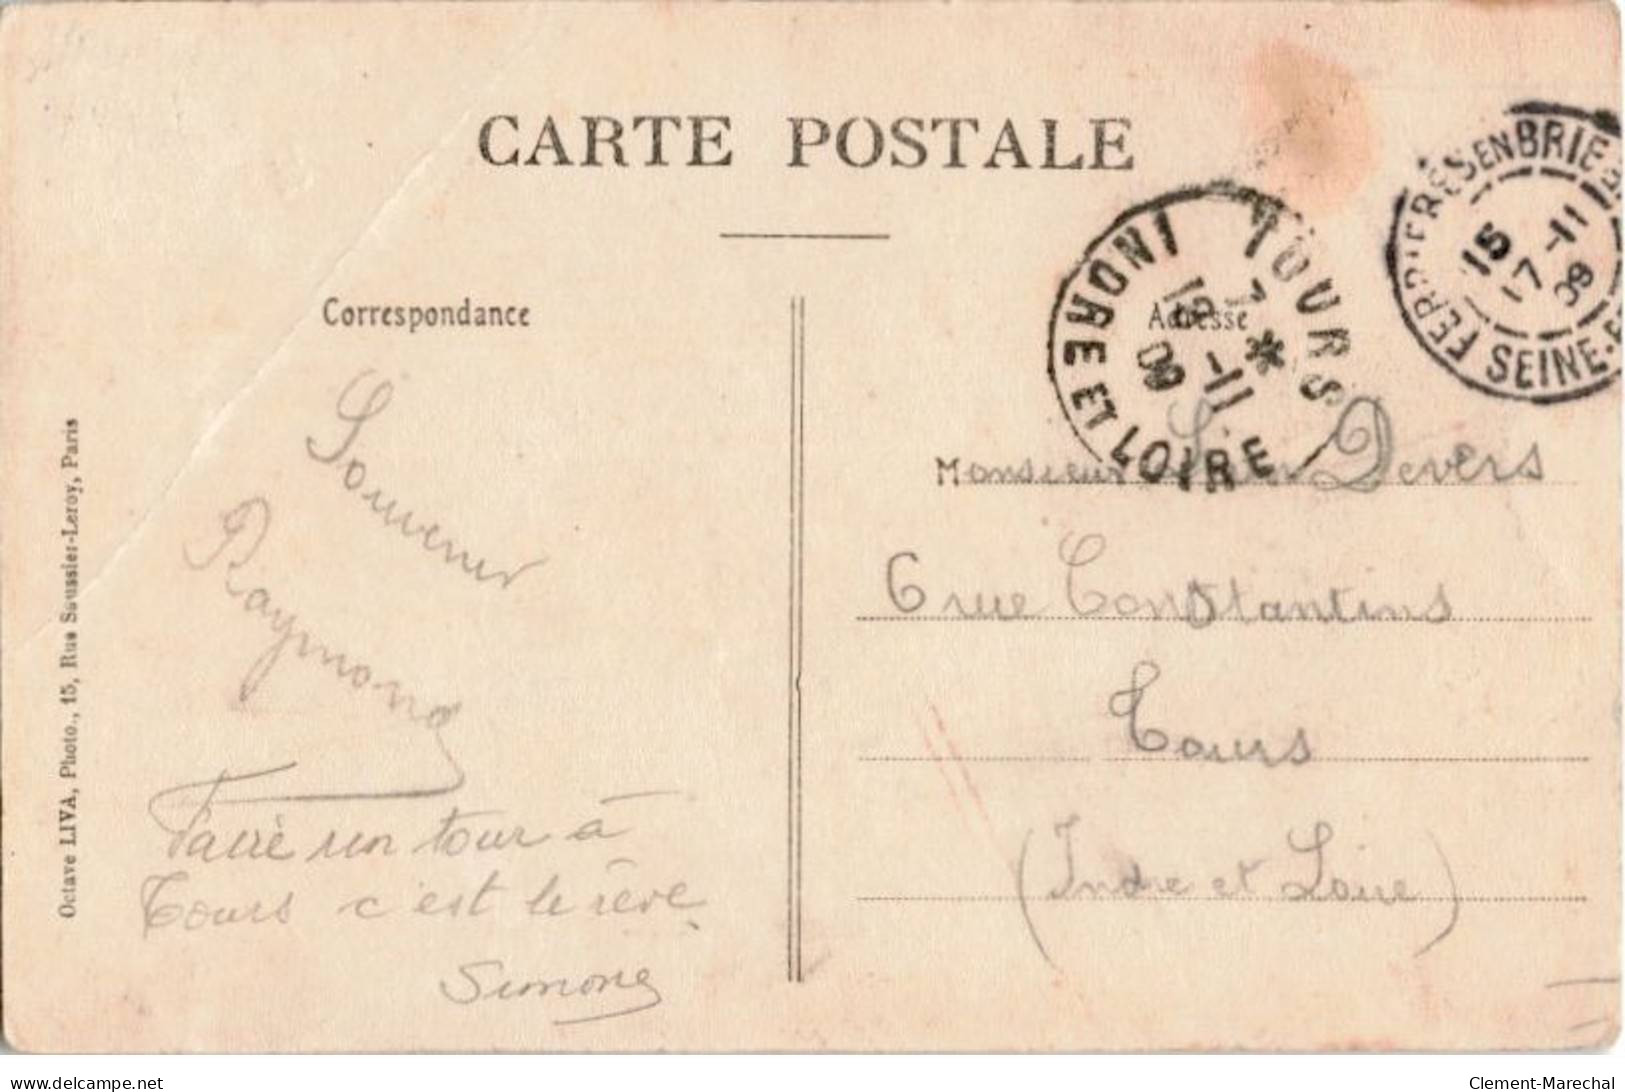 CARTE POSTALE
Correspondance
Adresse
Octave LIVA, Photo., 15, Rue Saussier-Leroy, Paris
Souvenir
Raymond
Faire un tour à
Tours c'est le rêve
Simone
TOURS
7 *
18 -11
09
INDRE ET LOIRE
FERRIERES EN BRIE
15
17 -11
09
SEINE-E
Monsieur Devers
6 rue Constantins
Tours
(Indre et Loire)
delcampe.net
Clement-Marechal